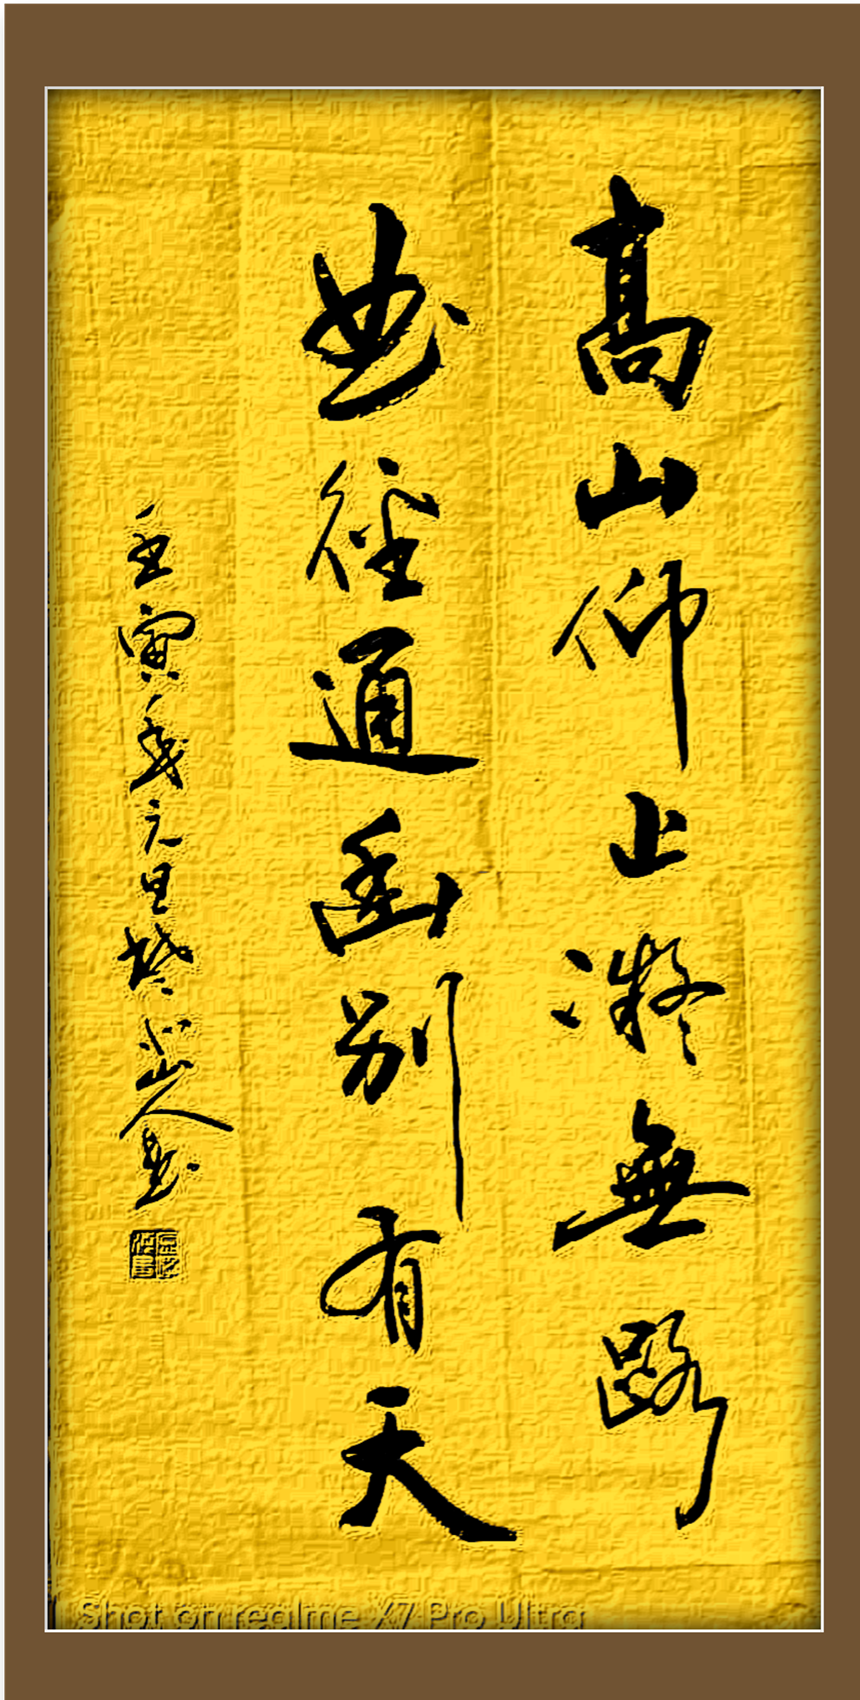 高山仰止凝無路
曲徑通幽别有天
壬寅年元旦楚山人書
Shot on realme X7 Pro Ultra